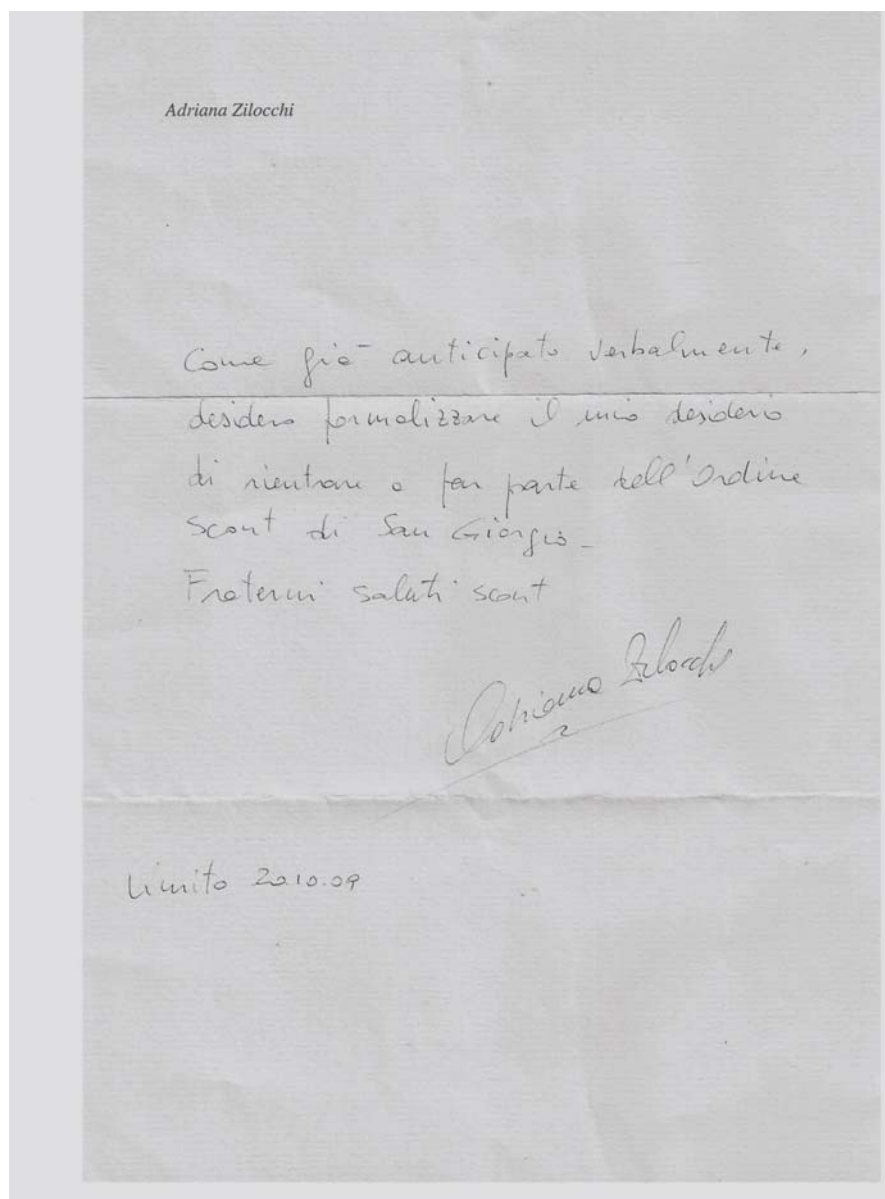 Adriana Zilocchi
Come già anticipato verbalmente,
desidero formalizzare il mio desiderio
di rientrare a far parte dell'Ordine
Scout di San Giorgio_
Fraterni saluti scout
Adriana Zilocchi
Limito 20.10.09